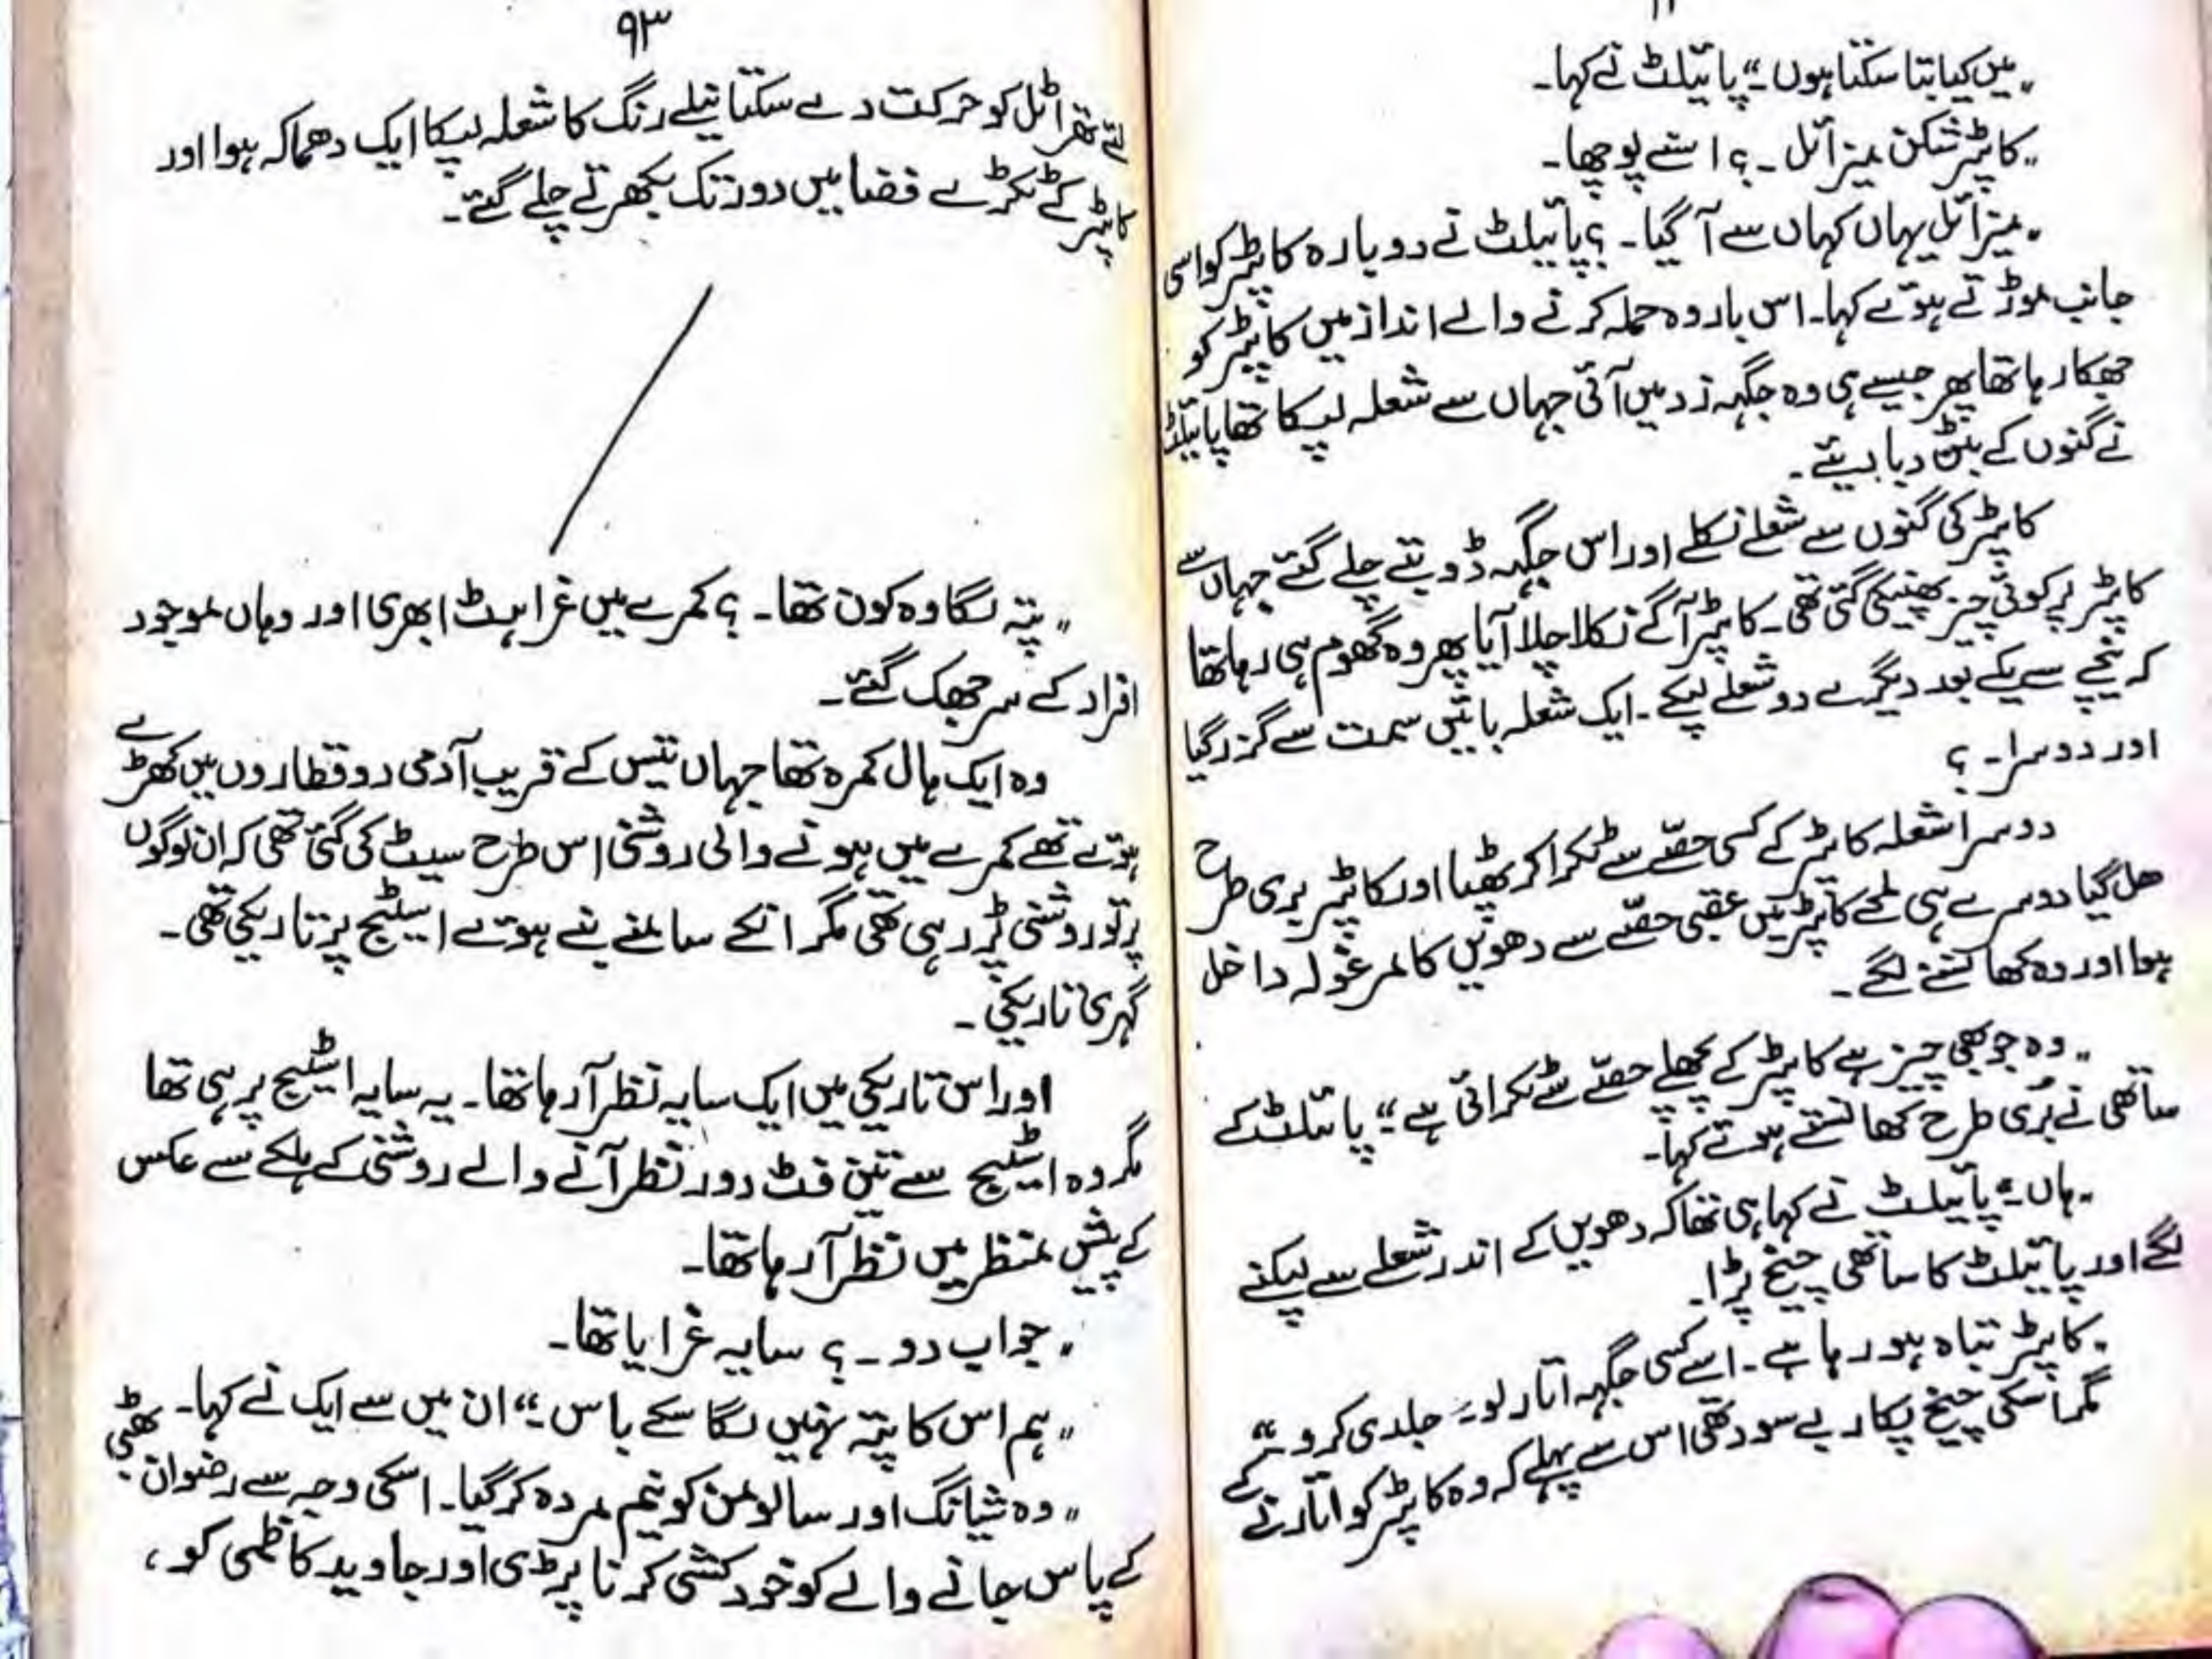 "میں کیا بتا سکتا ہوں۔" پائیلٹ نے کہا۔
"کاپٹر شکن میزائل۔؟ اسنے پوچھا۔
"میزائل یہاں کہاں سے آ گیا۔؟ پائیلٹ نے دوبارہ کاپٹر کو اسی
جانب موڑتے ہوئے کہا۔ اس بار وہ حملہ کرنے والے انداز میں کاپٹر کو
جھکا رہا تھا پھر جیسے ہی وہ جگہہ زد میں آئی جہاں سے شعلہ لپکا تھا پائیلٹ
نے گنوں کے بٹن دبا دیئے۔
کاپٹر کی گنوں سے شعلے نکلے اور اس جگہہ ڈوبتے چلے گئے جہاں سے
کاپٹر پر کوئی چیز پھینکی گئی تھی۔ کاپٹر آگے نکلا چلا آیا پھر وہ گھوم ہی رہا تھا
کہ نیچے سے یکے بعد دیگرے دو شعلے لپکے۔ ایک شعلہ بائیں سمت سے گزر گیا
اور دوسرا۔ ؟
دوسرا شعلہ کاپٹر کے کسی حصّے سے ٹکرا کر پھٹا اور کاپٹر بری طرح
ھل گیا دوسرے ہی لمحے کاپٹر میں عقبی حصّے سے دھوئیں کا مرغولہ داخل
ہوا اور وہ کھانسنے لگے۔
"وہ جو بھی چیز ہے کاپٹر کے پچھلے حصّے سے ٹکرائی ہے" پائیلٹ کے
ساتھی نے بُری طرح کھانستے ہوئے کہا۔
"ہاں۔" پائیلٹ نے کہا ہی تھا کہ دھویں کے اندر شعلے سے لپکنے
لگے اور پائیلٹ کا ساتھی چیخ پڑا۔
"کاپٹر تباہ ہو رہا ہے۔ اسے کسی جگہہ اتار لو۔ جلدی کرو۔"
مگر اسکی چیخ پکار بے سود تھی اس سے پہلے کہ وہ کاپٹر کو اتارنے کے
۹۳
لئے تھراٹل کو حرکت دے سکتا نیلے رنگ کا شعلہ لپکا ایک دھماکہ ہوا اور
کاپٹر کے ٹکڑے فضا میں دور تک بکھرتے چلے گئے۔
"پتہ لگا وہ کون تھا۔ ؟ کمرے میں غراہٹ ابھری اور وہاں موجود
افراد کے سر جھک گئے۔
وہ ایک ہال کمرہ تھا جہاں تیس کے قریب آدمی دو قطاروں میں کھڑے
ہوئے تھے کمرے میں ہونے والی روشنی اس طرح سیٹ کی گئی تھی کہ ان لوگوں
پر تو روشنی پڑ رہی تھی مگر انکے سامنے بنے ہوئے اسٹیج پر تاریکی تھی۔
گہری تاریکی۔
اور اس تاریکی میں ایک سایہ نظر آ رہا تھا۔ یہ سایہ اسٹیج پر ہی تھا
مگر وہ اسٹیج سے تین فٹ دور نظر آنے والے روشنی کے ہلکے سے عکس
کے پیش منظر میں نظر آ رہا تھا۔
"جواب دو۔ ؟ سایہ غرایا تھا۔
"ہم اس کا پتہ نہیں لگا سکے باس۔" ان میں سے ایک نے کہا۔
"وہ شیانگ اور سالومن کو نیم مردہ کر گیا۔ اسکی وجہ سے رضوان بھٹی
کے پاس جانے والے کو خود کشی کرنا پڑی اور جاوید کاظمی کو،